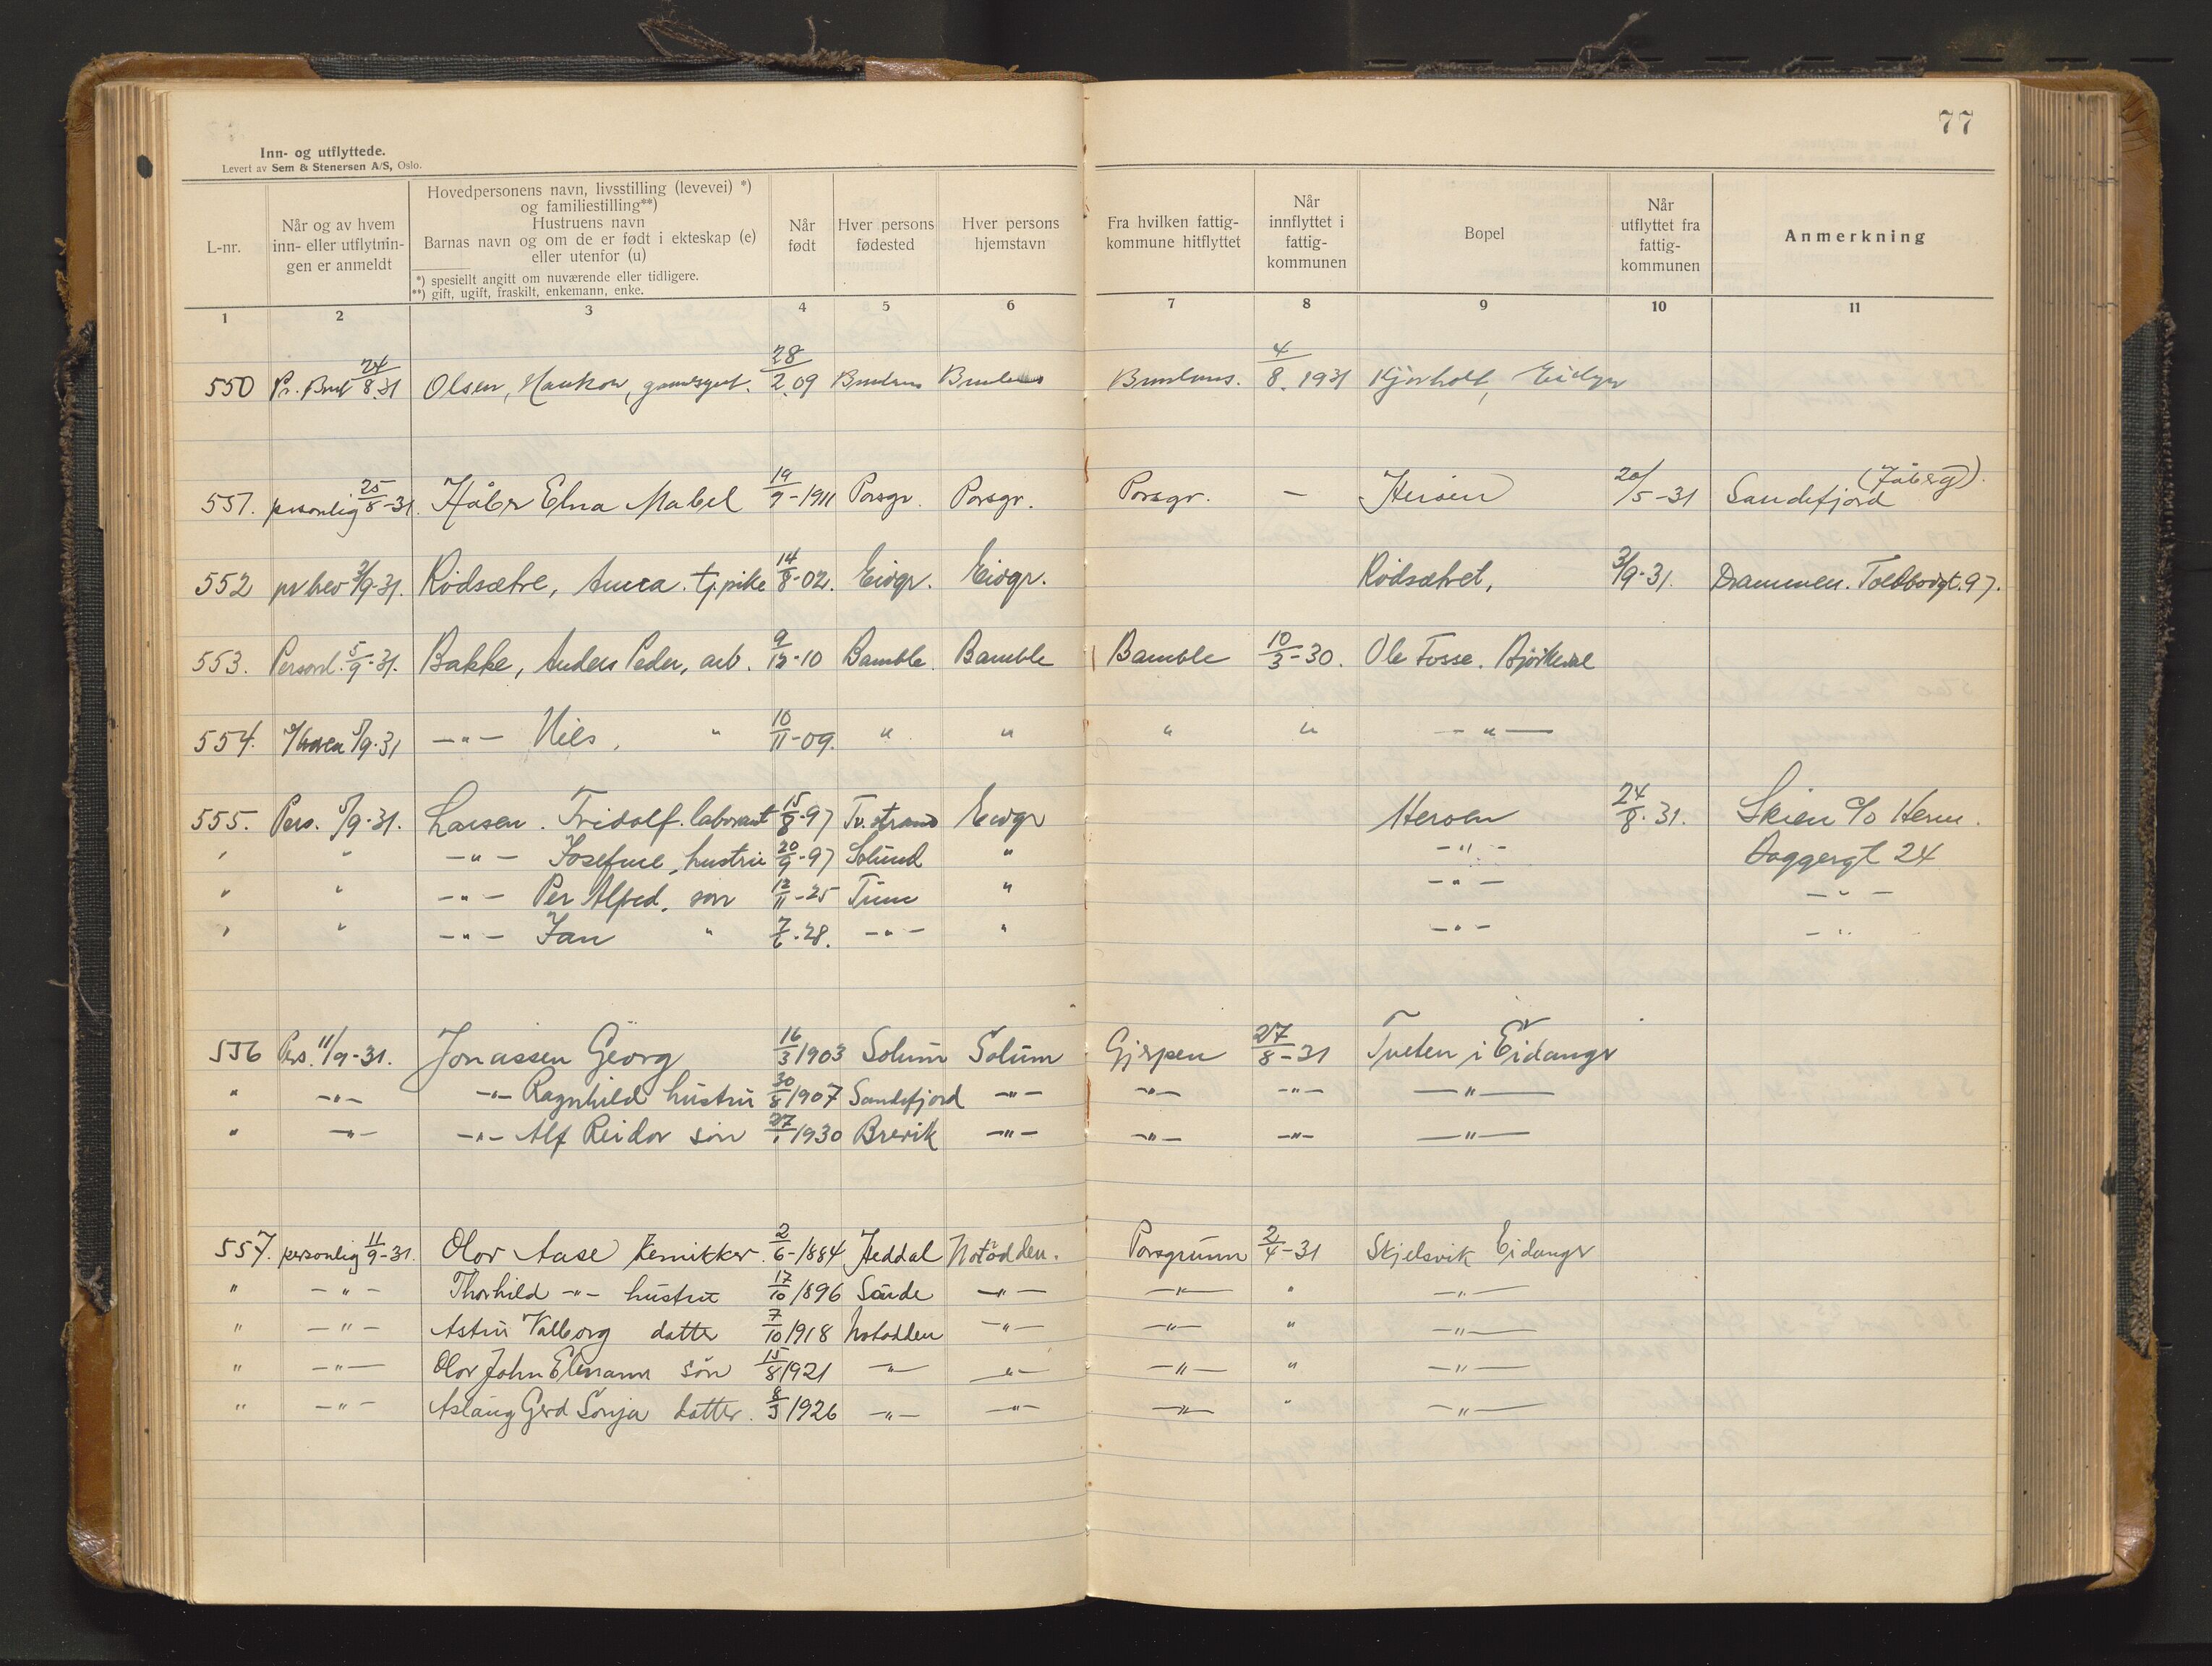 77
Inn- og utflyttede.
Levert av Sem & Stenersen A/S, Oslo.
L-nr.
Når og av hvem inn- eller utflytnin- gen er anmeldt
Hovedpersonens navn, livsstilling (levevei) *)
og familiestilling**)
Hustruens navn
Barnas navn og om de er født i ekteskap (e)
eller utenfor (u)
*) spesiellt angitt om nuværende eller tidligere.
**) gift, ugift, fraskilt, enkemann, enke.
Når født
Hver persons fødested
Hver persons hjemstavn
Fra hvilken fattig- kommune hitflyttet
Når innflyttet i fattig- kommunen
Bopel
Når utflyttet fra fattig- kommunen
Anmerkning
1 2 3 4 5 6 7 8 9 10 11
550 Pr. 24/8.31 Olsen, Haakon, 28/2.09 4/8.1931 Kjørholt,
551. personlig 25/8-31. Elna Mabel 19/9-1911 Porsgr. Porsgr. Porsgr. — Herøen 20/5-31 Sandefjord
552 pr brev 3/9-31. Rødsætre, Anna. tj.pike 14/8-02. Eidgr. Eidgr. Rødsætret, 3/9-31. Drammen. Toldbodgt. 97.
553. Personl. 5/9-31. Bakke, Anders Peder, arb. 9/12-10 Bamble Bamble Bamble 10/3-30. Ole Fosse.
554. 5/9-31 —"— Nils, " 10/11-09. " " " " —"—
555. Pers. 5/9-31. Larsen. Fridolf. laborant 15/8-97 Tv.strand Eidgr Herøen 24/8.31. Skien c/o Herm.
" " —"— Josefine, hustru 20/9-97 Solund " —"— Baggergt 24
" " —"— Per Alfred, søn 12/11-25 " —"— —"—
" " —"— Jan " 7/6.28. —"— " —"— —"—
556 Pers. 11/9-31. Jonassen Georg 16/3 1903 Solum Solum Gjerpen 27/8-31 Tveten i Eidanger
" —"— —"— Ragnhild hustru 30/8 1907 Sandefjord —"— —"— —"— —"—
" —"— —"— Alf Reidar søn 27/1 1930 Brevik —"— —"— —"— —"—
557. personlig 11/9-31. Olav Aase Kemikker. 2/6-1884 Heddal Notodden. Porsgrunn 2/4-31 Skjelsvik Eidanger
" —"— Thorhild —"— hustru 17/10 1896 Saude —"— —"— " —"—
" —"— Astri Valborg datter 7/10 1918 Notodden —"— —"— " —"—
" —"— Olav John søn 15/8 1921 —"— —"— —"— " —"—
" —"— Aslaug Gerd Sonja datter. 8/3 1926 —"— —"— —"— " —"—